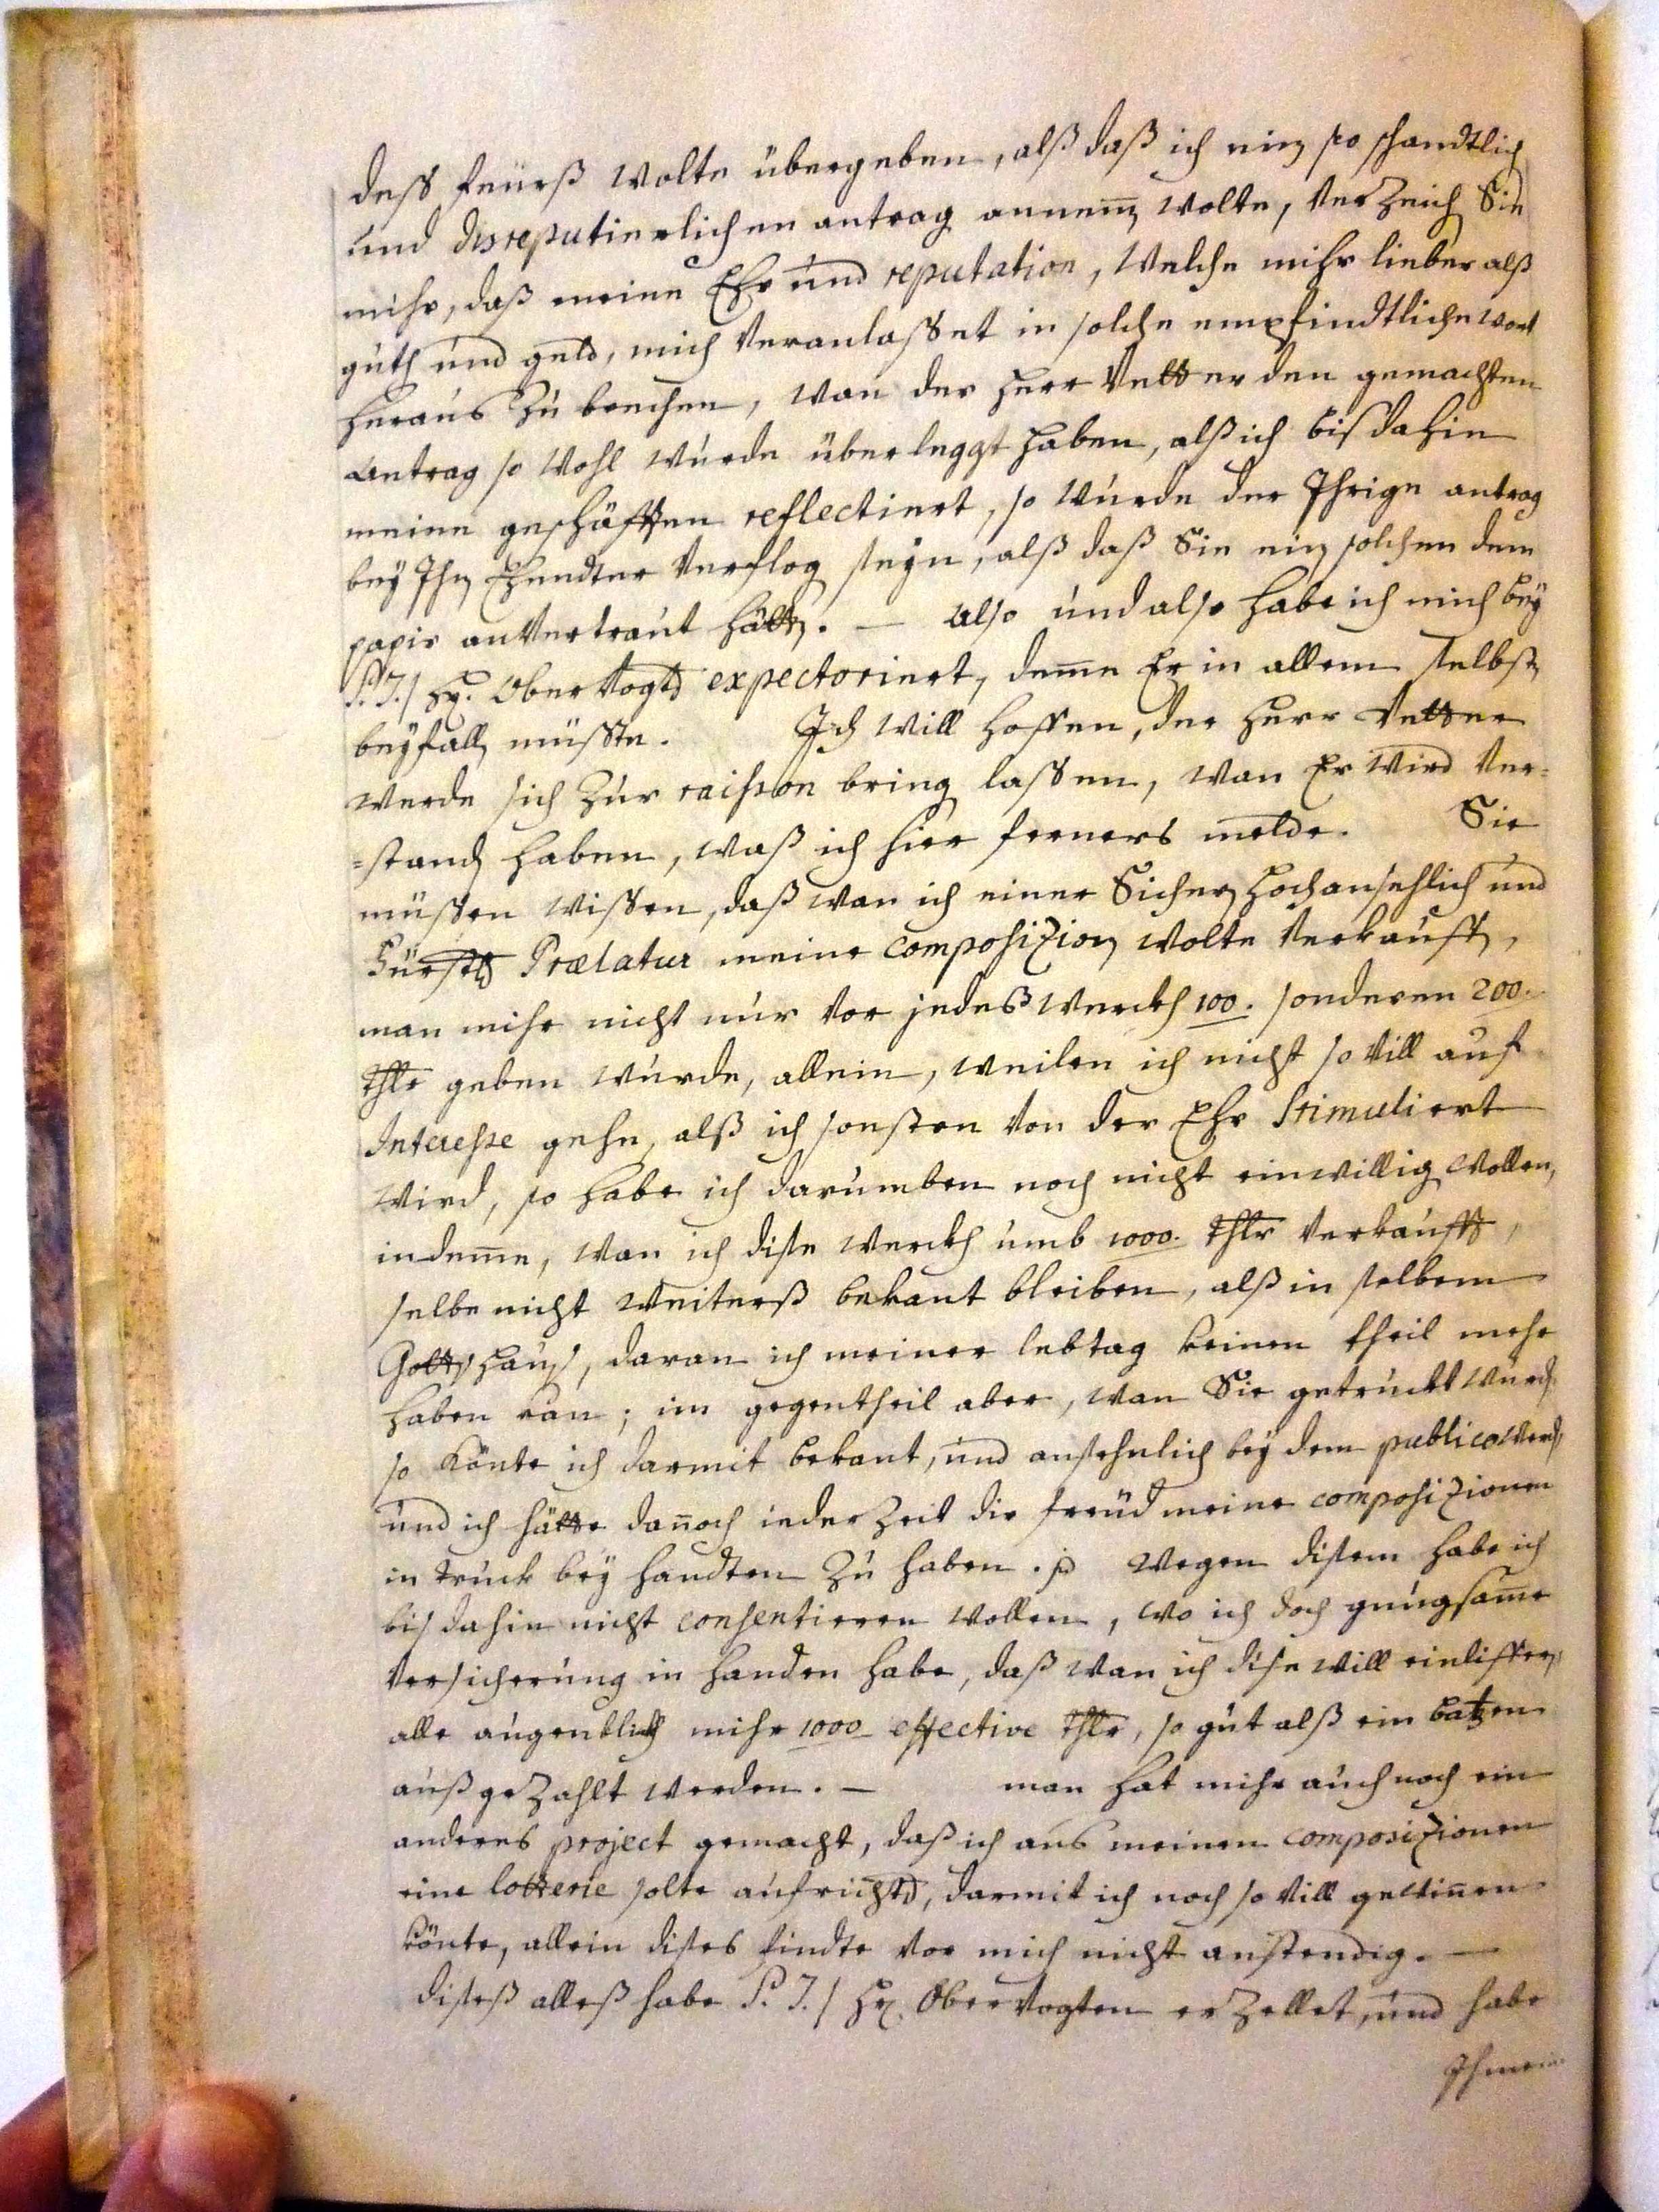 dess feürß wolte übergeben, alß daß ich ein so schandtlich
und disreputierlichen antrag annem̄ wolte, Verzeich Sie
mihr, daß meine Ehr und reputation, Welche mihr lieber alß
guth und geld, mich Veranlasset in solche empfindtliche wort
heraus zu brechen, wan der Herr Vetter den gemachten
Antrag so wohl wurde überleggt haben, alß ich bis dahin
meine geschäfften reflectiert, so wurde der Ihrige antrag
bey Ihn Ehender Verflog seyn, alß daß Sie ein solchen dem
papir anVertraut hätt. — Also und also habe ich mich bey
P. T./ Hr. OberVogt expectoriert, deme Er in allem selbst
beyfall müsste. Ich will hoffen, der Herr Vetter
werde sich zur raisson bring lassen, wan Er wird Ver=
=stand haben, waß ich hier ferners melde. Sie
müssen wissen, daß wan ich einer Sicher Hochansehlich und
Fürstl Prælatur meine composizion wolte Verkauff,
man mihr nicht nur Vor jedeß Werckh 100. sonderen 200.
thlr geben wurde, allein, weilen ich nicht so Vill auf
Interesse gehe, alß ich sonsten Von der Ehr Stimuliert
wird, so habe ich darumben noch nicht einwillig wollen,
indeme, wan ich dise Werckh umb 1000. thlr Verkauff,
selbe nicht weiterß bekant bleiben, alß in selbem
Gottshaus, daran ich meiner lebtag keinen theil mehr
haben kan; im gegentheil aber, wan Sie getruckt wurd
so könte ich darmit bekant, und ansehnlich bey dem publico werd,
und ich hätte dañoch ieder Zeit die freüd meine composizionen
in truck bey handten zu haben. Wegen disem habe ich
bis dahin nicht consentieren wollen, wo ich doch gnugsame
Versicherung in handen habe, daß wan ich dise will einliffern,
alle augenblickh mihr 1000 effective thlr, so gut alß ein batzen
außgezahlt werden. — man hat mihr auch noch ein
anderes project gemacht, daß ich aus meinen composizionen
eine lotterie solte aufricht, darmit ich noch so Vill gewiñen
könte, allein dises findte Vor mich nicht anstendig. —
diseß alleß habe P. T./ Hr. OberVogten erzellet, und habe
Ihme